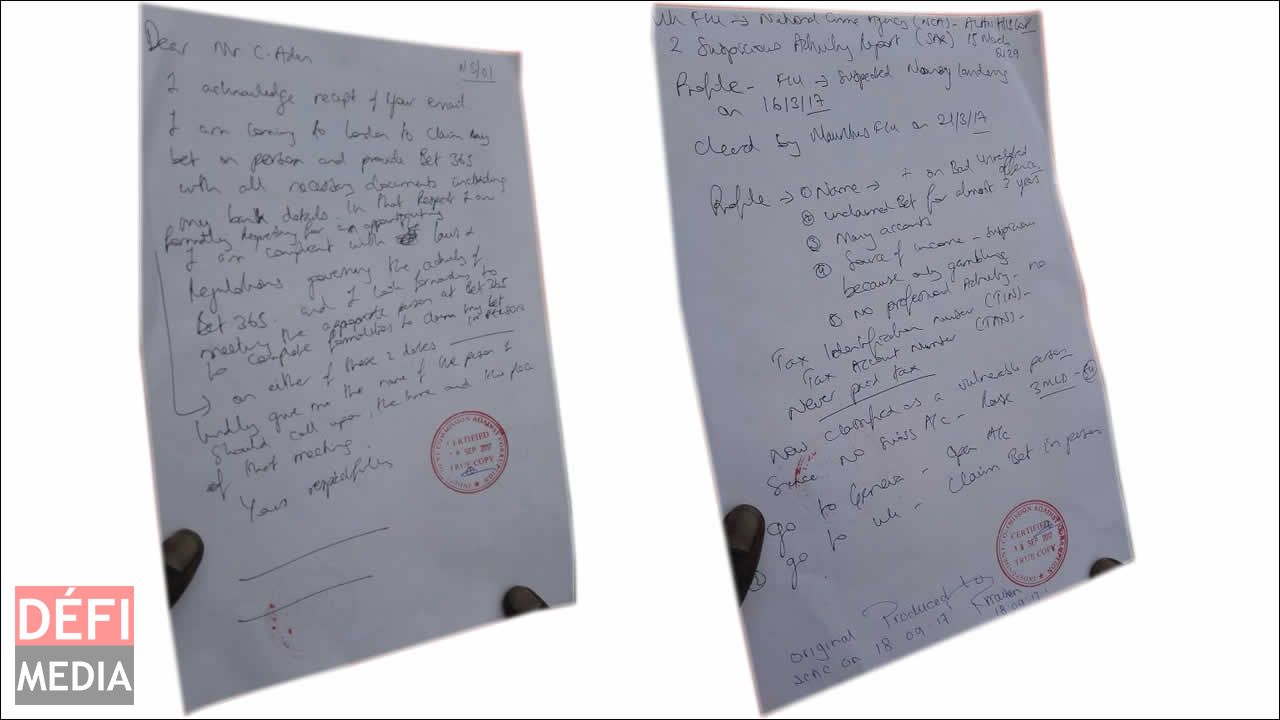 Dear Mr C. Adam
NS/01
I acknowledge receipt of your email.
I am coming to London to claim my
bet in person and provide Bet 365
with all necessary documents including
my bank details. In that Respect I am
formally requesting for an appointment
I am compliant with laws &
Regulations governing the activity of
Bet 365. and I look forwarding to
meeting the appropriate person at Bet 365
to complete formalities to claim my bet
in person
on either of these 2 dates
kindly give me the name of the person I
should call upon, the time and the place
of that meeting.
Yours respectfully
INDEPENDENT COMMISSION AGAINST CORRUPTION
CERTIFIED
SEP 2017
TRUE COPY
Uk FIU → National Crime Agency (NCA) - ALAN
2 Suspicious Activity Report (SAR) 15 March
Profile - FIU → Suspected Money laundering
on 16/3/17
Cleared by Mauritius FIU on 21/3/17
Profile → ① Name → + on Bail
② unclaimed Bet for almost 2 years
③ Many accounts
④ Source of income - suspicious
because only gambling
⑤ No professional Activity - no
Tax Identification number (TIN) -
Tax Account Number (TAN) -
Never paid tax
Now classified as a vulnerable person
Since no Swiss A/c - Raise 3 MLD -
go to Geneva - open A/c
go to uk - Claim Bet in person
INDEPENDENT COMMISSION AGAINST CORRUPTION
CERTIFIED
18 SEP 2017
TRUE COPY
original Produced to
ICAC on 18 09 17
18.09.17
DÉFI
MEDIA